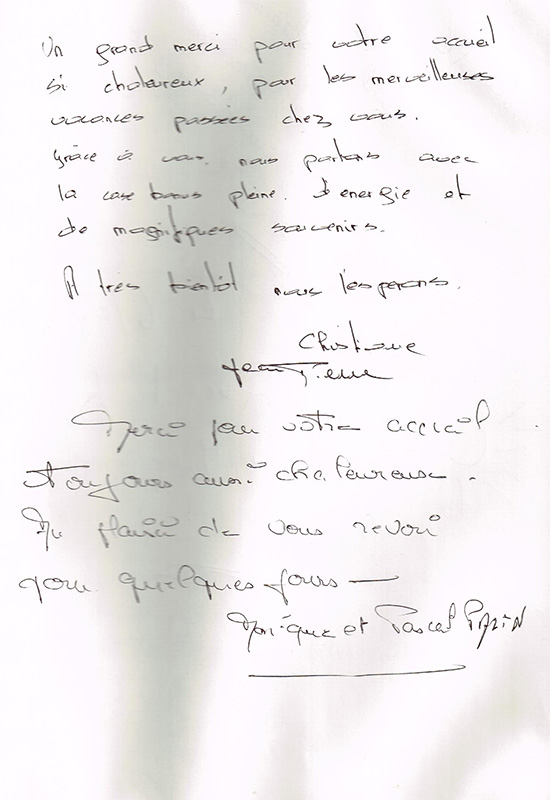 Un grand merci pour votre accueil
si chaleureux, pour les merveilleuses
vacances passées chez vous.
Grâce à vous nous partons avec
la case bonus pleine. d'energie et
de magnifiques souvenirs.
A très bientôt nous l'esperons.
Christiane
Jean Pierre
Merci pour votre accueil
toujours aussi chaleureux.
Au plaisir de vous revoir
pour quelques jours —
Monique et Pascal PAPIN